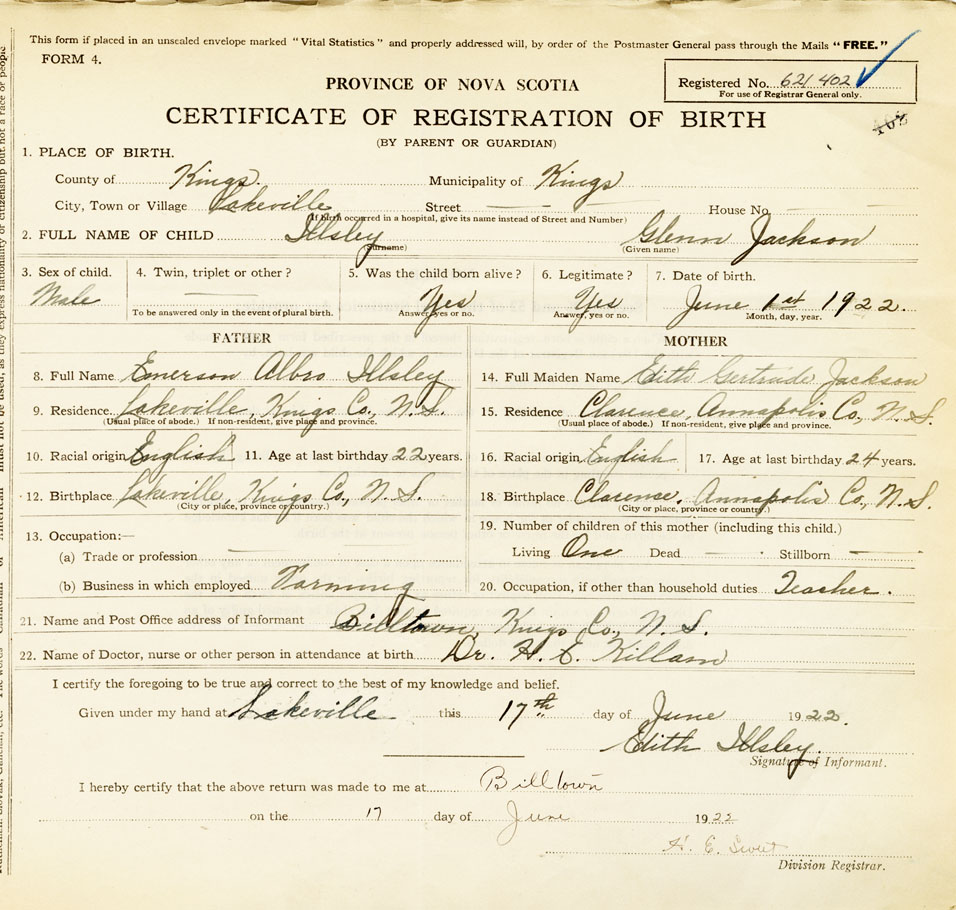 This form if placed in an unsealed envelope marked "Vital Statistics" and properly addressed will, by order of the Postmaster General pass through the Mails "FREE."
FORM 4.
PROVINCE OF NOVA SCOTIA
Registered No. 621 402
For use of Registrar General only.
CERTIFICATE OF REGISTRATION OF BIRTH
402
(BY PARENT OR GUARDIAN)
1. PLACE OF BIRTH.
County of Kings. Municipality of Kings
City, Town or Village Lakeville Street House No.
(If birth occurred in a hospital, give its name instead of Street and Number)
2. FULL NAME OF CHILD Illsley Glenn Jackson
(Surname) (Given name)
3. Sex of child. 4. Twin, triplet or other? 5. Was the child born alive? 6. Legitimate? 7. Date of birth.
Male Yes Yes June 1st 1922.
To be answered only in the event of plural birth. Answer, yes or no. Answer, yes or no. Month, day, year.
FATHER MOTHER
8. Full Name Emerson Albro Illsley 14. Full Maiden Name Edith Gertrude Jackson
9. Residence. Lakeville, Kings Co., N.S. 15. Residence Clarence, Annapolis Co., N.S.
(Usual place of abode.) If non-resident, give place and province. (Usual place of abode.) If non-resident, give place and province.
10. Racial origin English 11. Age at last birthday 22 years. 16. Racial origin English 17. Age at last birthday 24 years.
12. Birthplace Lakeville, Kings Co., N.S. 18. Birthplace Clarence, Annapolis Co., N.S.
(City or place, province or country.) (City or place, province or country.)
13. Occupation:— 19. Number of children of this mother (including this child.)
(a) Trade or profession Living One Dead Stillborn
(b) Business in which employed Farming 20. Occupation, if other than household duties Teacher.
21. Name and Post Office address of Informant Billtown, Kings Co., N.S.
22. Name of Doctor, nurse or other person in attendance at birth Dr. H. E. Killam
I certify the foregoing to be true and correct to the best of my knowledge and belief.
Given under my hand at Lakeville this 17th day of June 1922.
Edith Illsley.
Signature of Informant.
I hereby certify that the above return was made to me at Billtown
on the 17 day of June 1922
H. E. Sweet
Division Registrar.